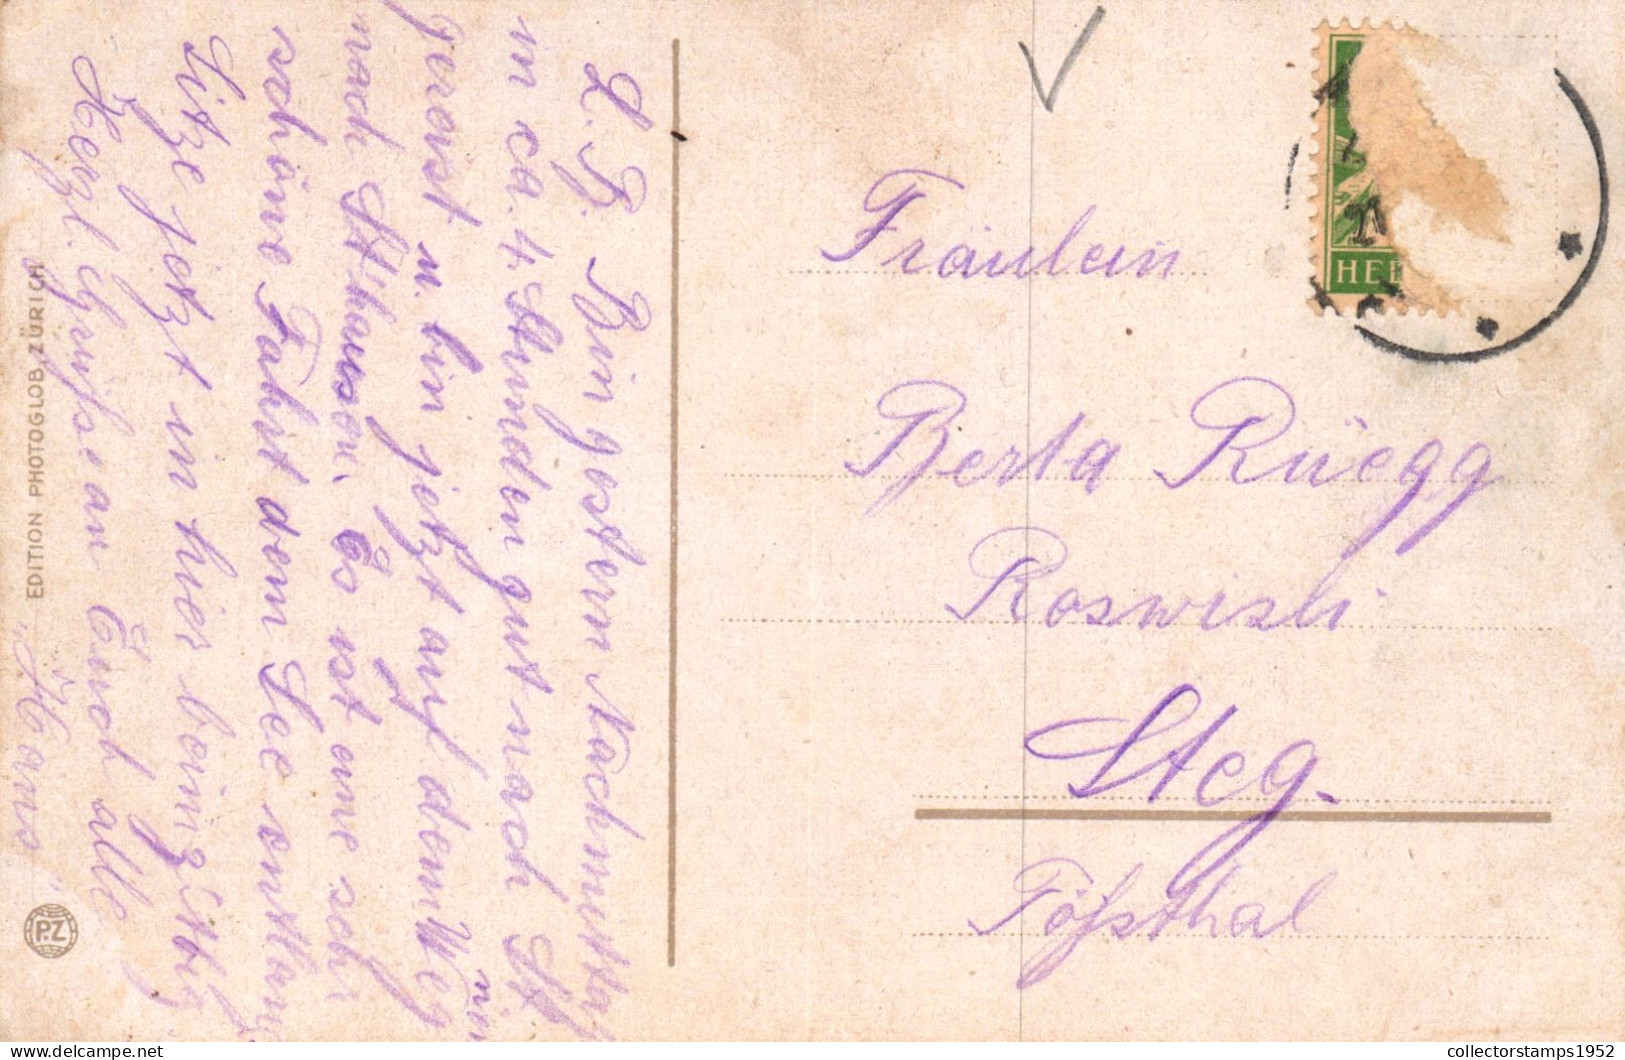 L. B. Bin gestern Nachmittag
in ca. 4 Stunden gut nach St.
gereist u. bin jetzt auf dem Weg
nach St'hausen. Es ist eine sehr
schöne Fahrt dem See entlang
Sitze jetzt in hier
Herzl. Grüsse an Euch alle
"Hans"
EDITION PHOTOGLOB, ZÜRICH
P.Z
Fräulein
Berta Rüegg
Roswisli
Steg.
Tößthal
HEL
21
collectorstamps1952